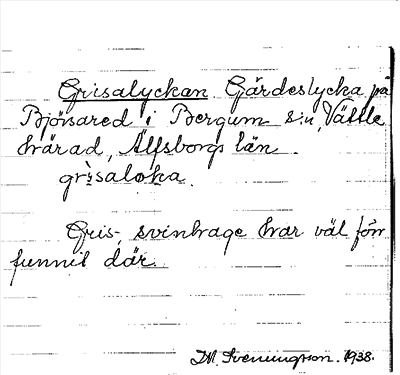 Grisalyckan. Gärdeslycka på
Björsared i Bergum s:n, Vättle
härad, Älfsborgs län.
grisaloka.
Gris-, svinhage har väl förr
funnit där.
Svenungsson. 1938.